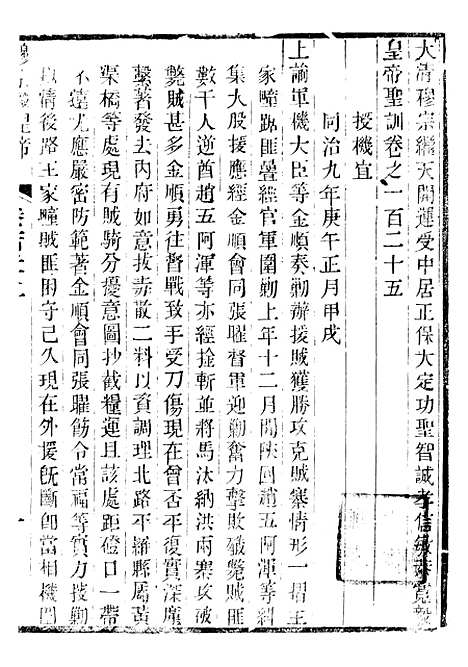 大清穆宗繼天開運受中居正保大定功聖智誠孝信敏恭寬毅
皇帝聖訓卷之一百二十五
授機宜
同治九年庚午正月甲戌
上諭軍機大臣等金順奏勦辦援賊獲勝攻克賊寨情形一摺王
家疃踞匪曇經官軍圍勦上年十二月間陝回趙五阿渾等糾
集大股援應經金順會同張曜督軍迎勦奮力擊敗殲斃賊匪
數千人逆酋趙五阿渾等亦經擒斬並將馬汰納洪兩寨攻破
斃賊甚多金順勇往督戰致手受刀傷現在曾否平復實深廑
繫著發去內府如意拔毒散二料以資調理北路平羅縣屬黃
渠橋等處現有賊騎分擾意圖抄截糧運且該處距磴口一帶
不遠尤應嚴密防範著金順會同張曜飭令常福等實力援勦
以清後路王家疃賊匪困守已久現在外援既斷卽當相機